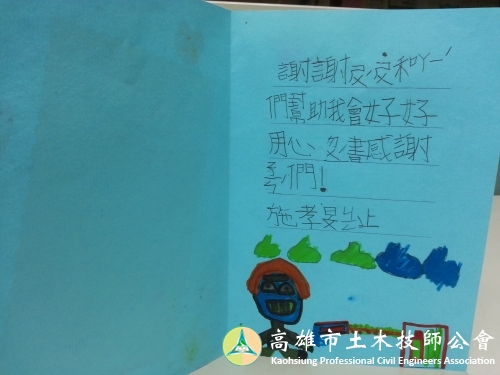 謝謝
們幫助我會好好
用心、 書感謝
們!
施孝旻 上
高雄市土木技師公會
Kaohsiung Professional Civil Engineers Association